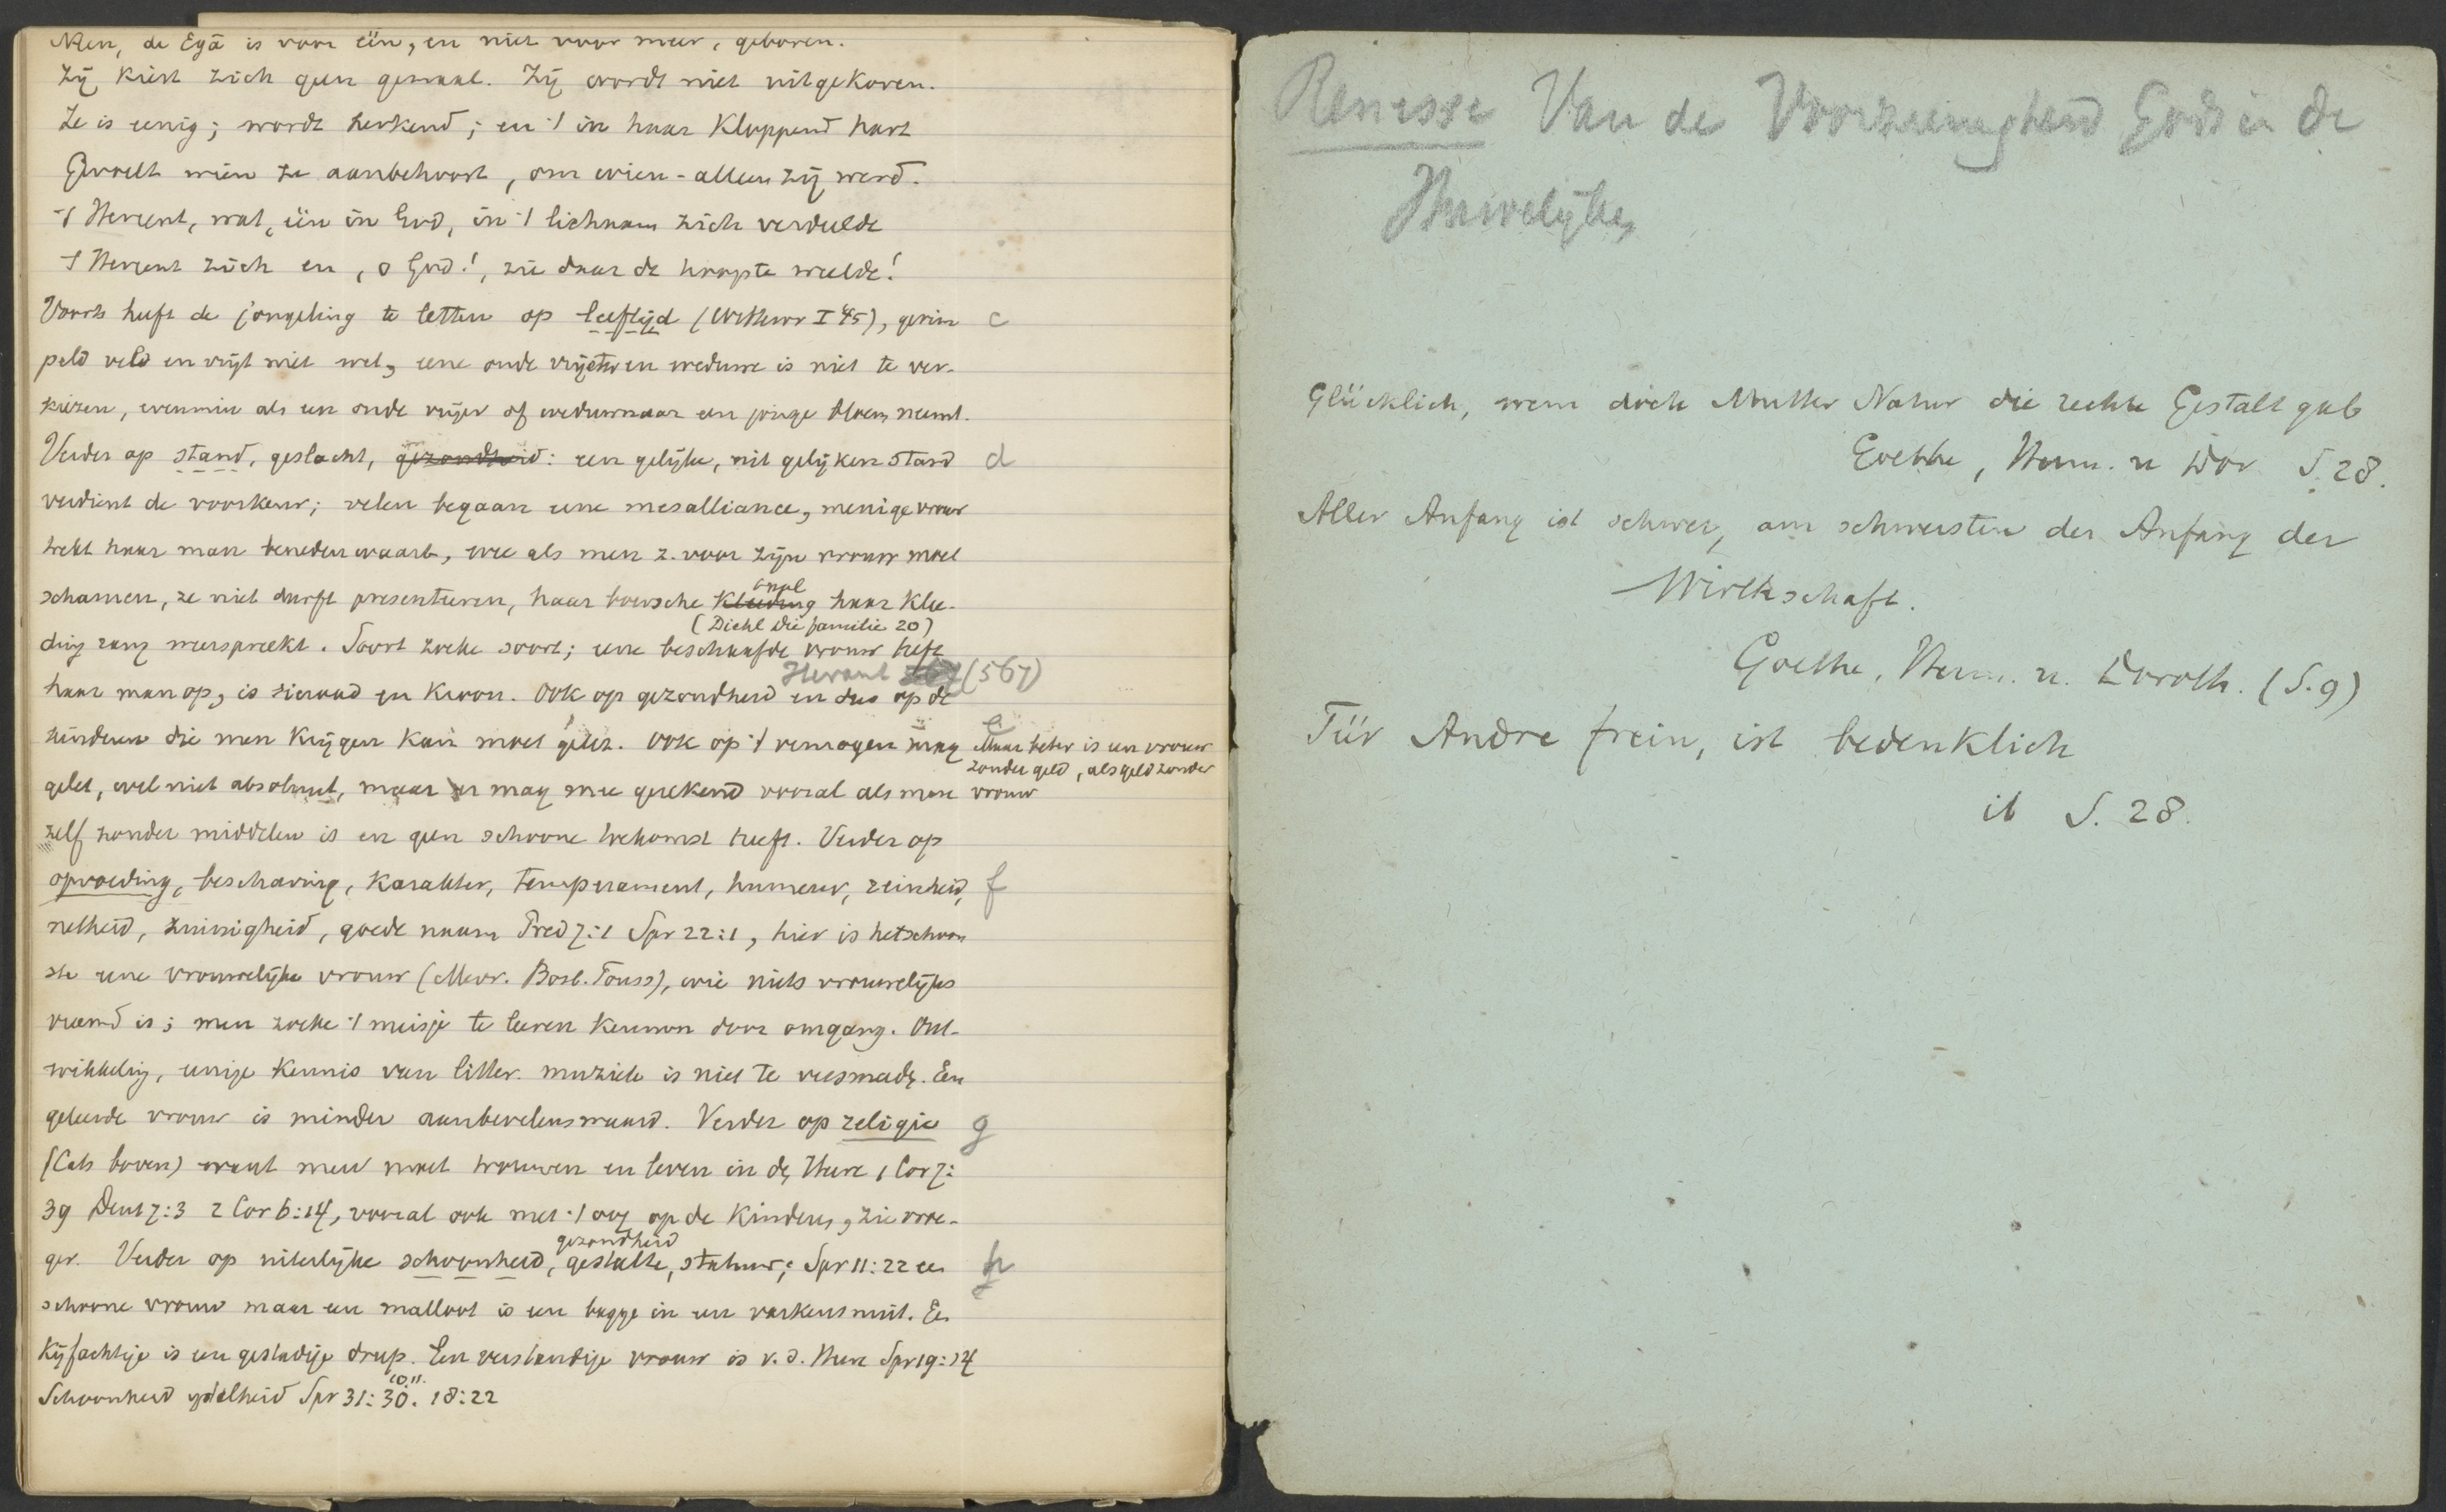 Neen, de Egā is voor één, en niet voor meer, geboren.
Zij kiest zich geen gemaal. Zij wordt niet uitgekoren.
Ze is eenig; wordt herkend; en 't in haar kloppend hart
Gevoelt wien ze aanbehoort, om wien-alleen zij werd.
't Hereent, wat, één in God, in 't lichaam zich verdeelde
't Hereent zich en, o God!, zie daar de hoogste weelde!
Voorts heeft de jongeling te letten op leeftijd (Wttewr I 45), gerim c
peld veld en vrijt niet wel, eene oude vrijster en weduwe is niet te ver-
kiezen, evenmin als een oude vrijer of weduwnaar een jonge bloem neemt.
Verder op stand, geslacht, gezondheid: een gelijke, uit gelijken stand d
verdient de voorkeur; velen begaan eene mesalliance, menige vrouw
trekt haar man benedenwaarts, wee als men z. voor zijn vrouw moet
schamen, ze niet durft presenteeren, haar boersche kleeding haar klee-
(Diehl die familie 20)
ding tegenspreekt. Soort zoeke soort; eene beschaafde vrouw heft
Heraut (567)
haar man op, is sieraad en kroon. Ook op gezondheid en dus op de
kinderen die men krijgen kan moet gelet. Ook op 't vermogen mag e Maar beter is een vrouw
zonder geld, als geld zonder
gelet, wel niet absoluut, maar er mag mee gerekend vooral als men vrouw
zelf zonder middelen is en geen schoone toekomst heeft. Verder op
opvoeding, beschaving, karakter, temperament, humeur, reinheid, f
netheid, zuinigheid, goede naam Pred 7:1 Spr 22:1, hier is het schoon
ste eene vrouwelijke vrouw (Mevr. Bosb. Touss), wie niets vrouwelijks
vreemd is; men zoeke 't meisje te leeren kennen door omgang. Ont-
wikkeling, eenige kennis van litter. muziek is niet te versmade. Een
geleerde vrouw is minder aanbevelenswaard. Verder op religie g
(Cats boven) want men moet trouwen en leven in de Heere 1 Cor 7:
39 Deut 7:3 2 Cor 6:14, vooral ook met 't oog op de kinderen, zie vroe-
gezondheid
ger. Verder op uiterlijke schoonheid, gestalte, statuur; Spr 11:22 een h
schoone vrouw maar een malloot is een bagge in een varkenssnuit. Een
kijfachtige is een gestadige drup. Een verstandige vrouw is v. d. Heere Spr 19:14
10.11.
Schoonheid ijdelheid Spr 31:30. 18:22
Renesse Van de Voorzienigheid Gods in de
Huwelijken
Glücklich, wem doch Mutter Natur die rechte Gestalt gab
Goethe, Herm. u Dor S. 28.
Aller Anfang ist schwer, am schwersten der Anfang der
Wirthschaft.
Goethe, Herm. u. Doroth. (S. 9)
Für Andre frein, ist bedenklich
ib S. 28.